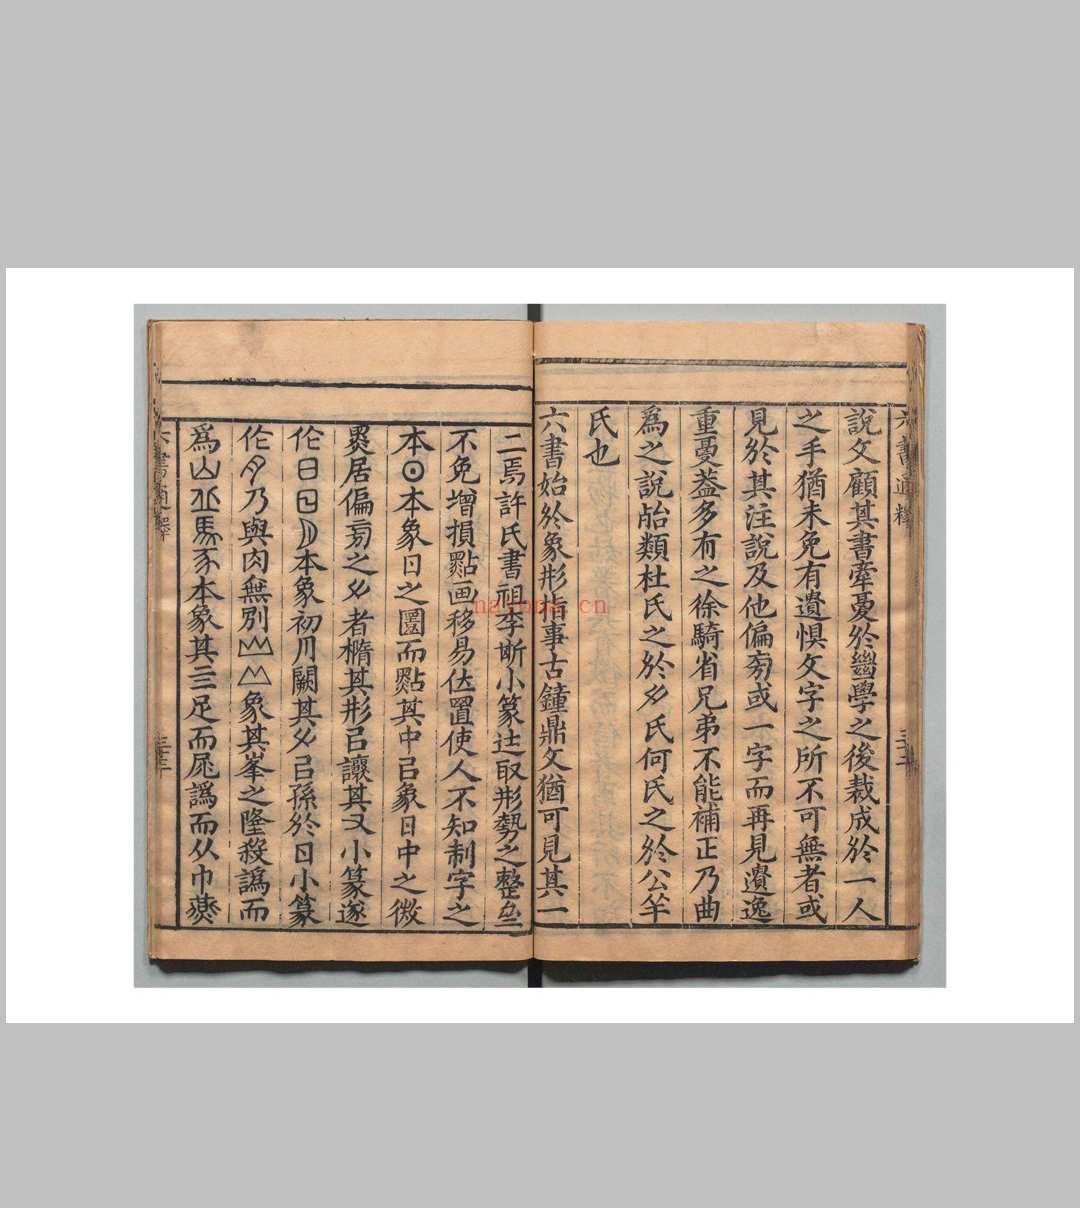 說文顧其書牽於學之後裁成於一人
之手猶未免有遺惧文字之所不可無者或
見於其注說及他偏㫄或一字而再見遺逸
重蓋多有之徐騎省兄弟不能補正乃曲
為之說類杜氏之於𠂇氏何氏之於公羊
氏也
六書始於象形指事古鐘鼎文猶可見其一
二焉許氏書祖李斯小篆取形勢之整
不免增損點画移易位置使人不知制字之
本⊙本象日之圜而點其中㠯象日中之微
黑居偏㫄之𠂇者橢其形㠯讓其又小篆遂
作日本象初月闕其𠂇㠯孫於日小篆
作乃與肉無別象其峯之隆殺譌而
為山馬豕本象其三足而尾譌而从巾
nayona.cn